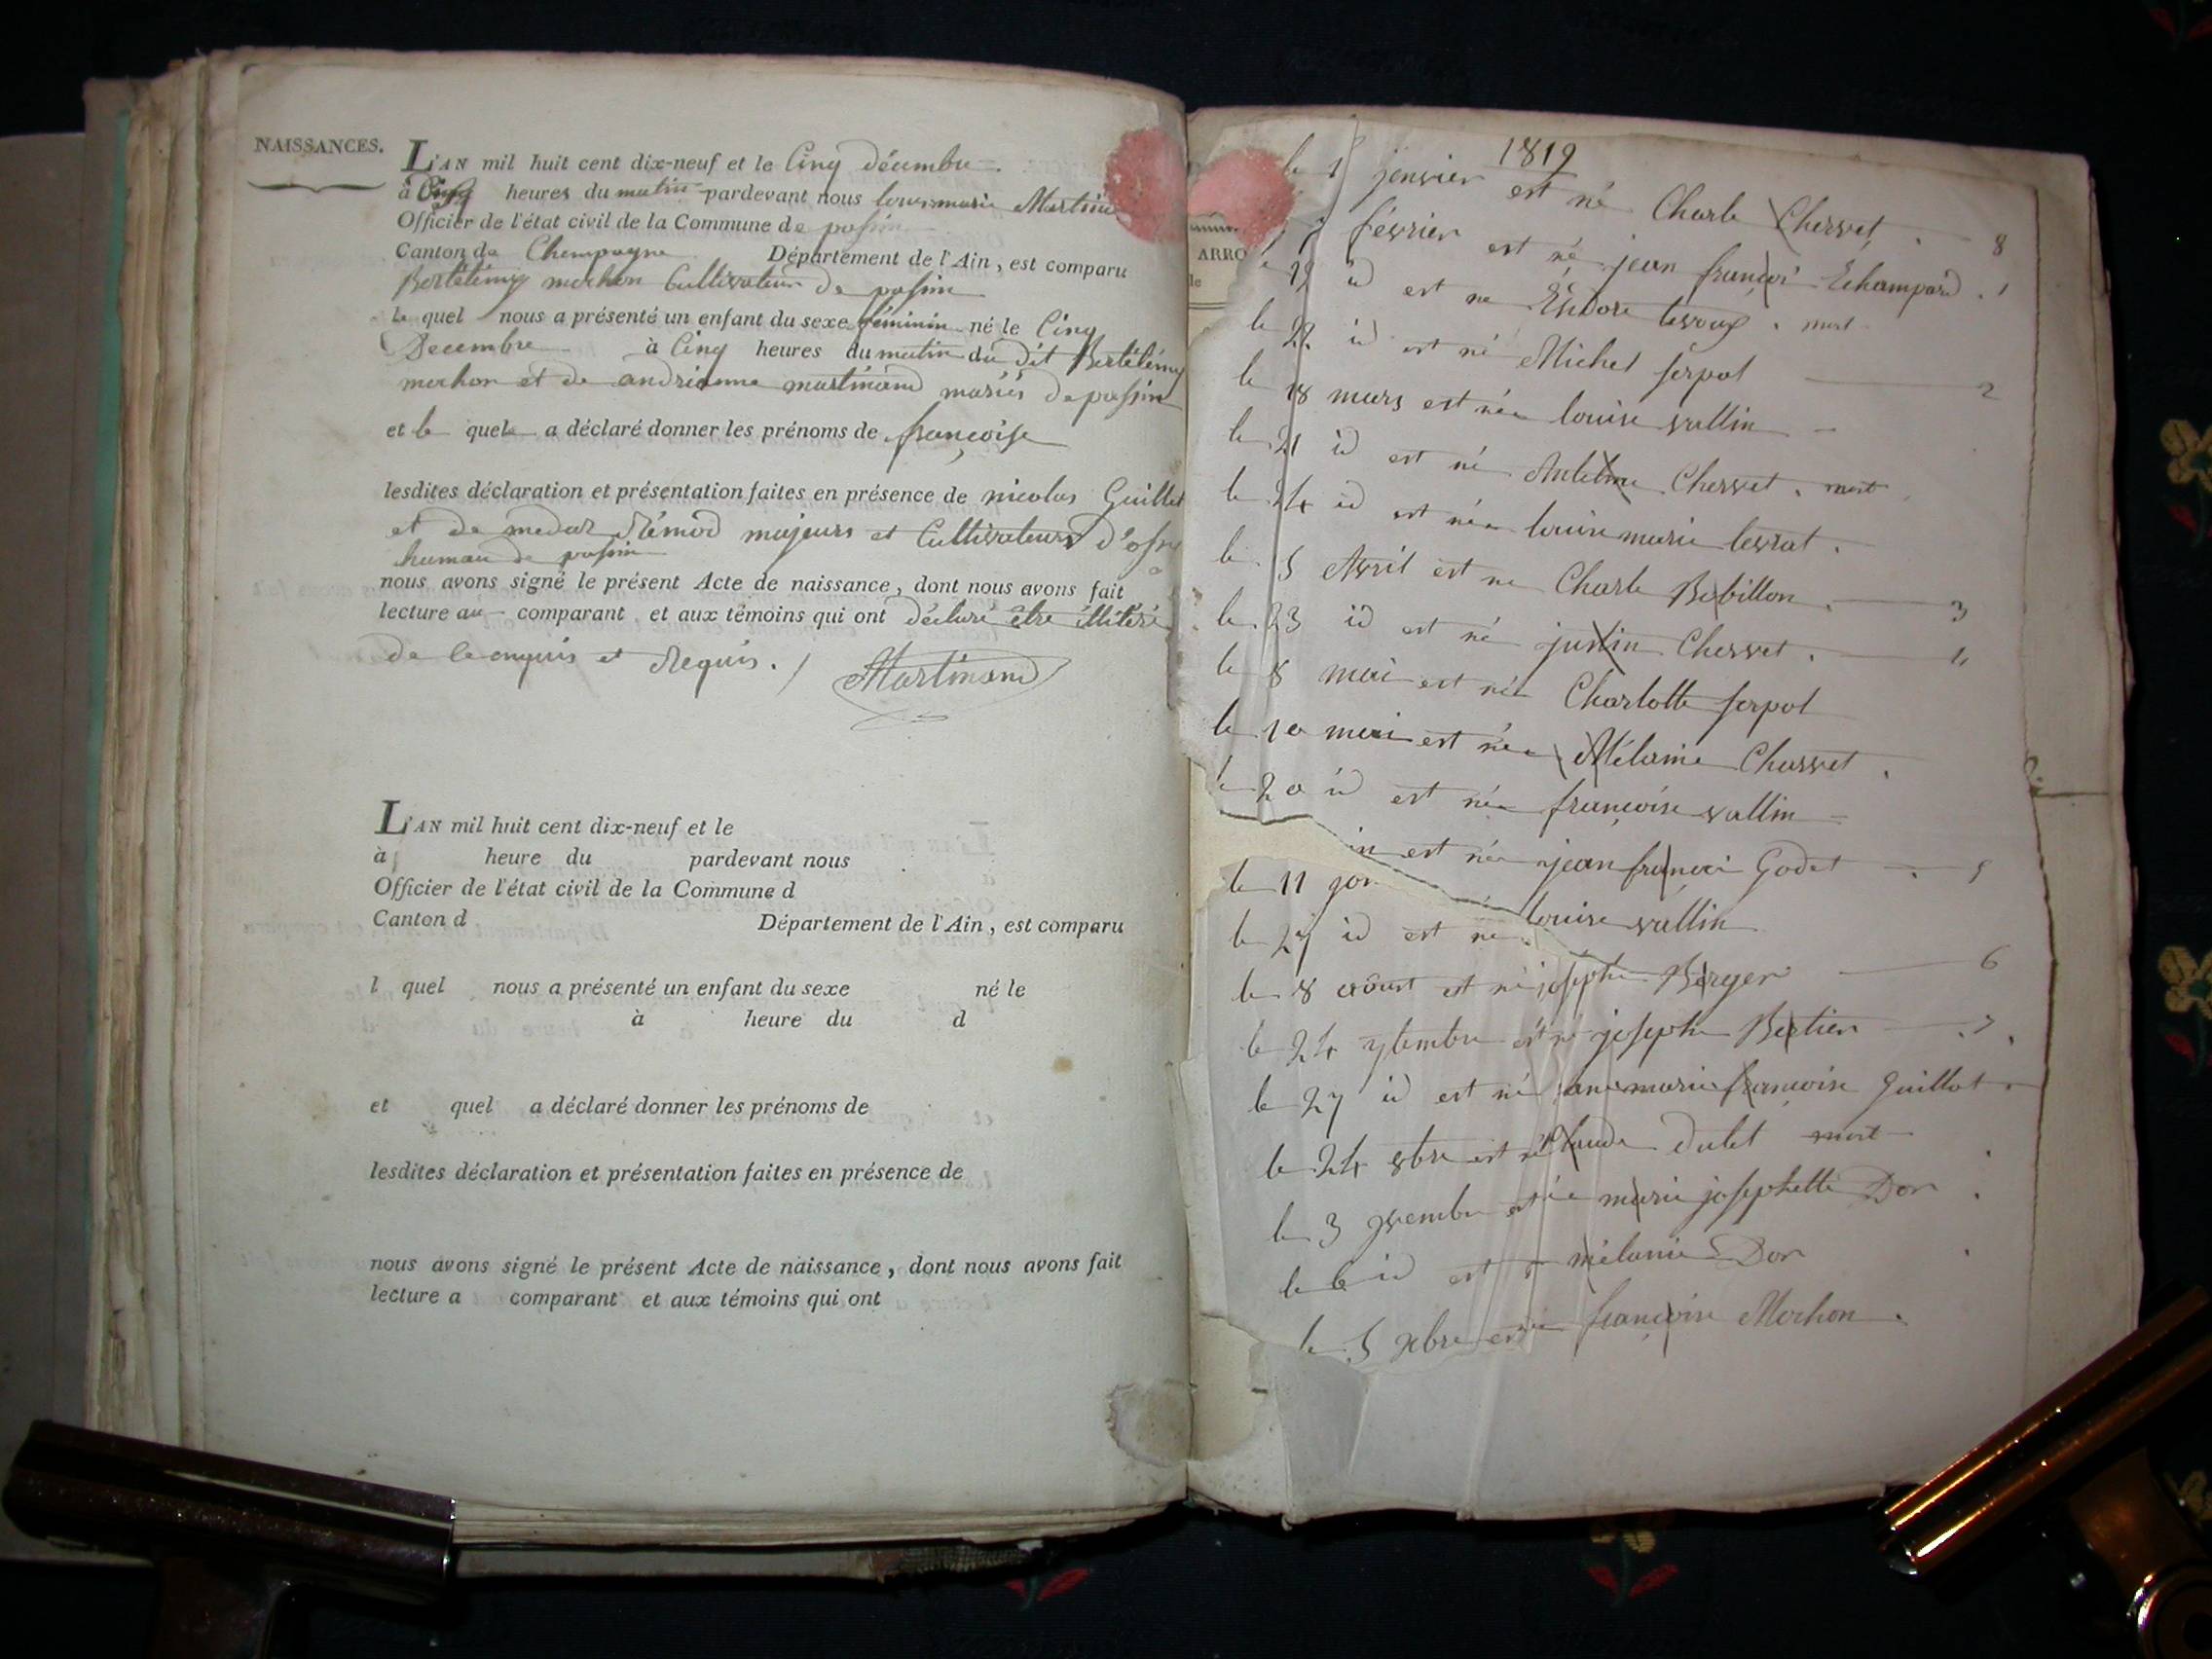 NAISSANCES.
L'AN mil huit cent dix-neuf et le Cinq décembre
à Cinq heures du matin pardevant nous louis marie Martinand
Officier de l'état civil de la Commune de passin
Canton de Champagne Département de l'Ain, est comparu
Bertélémy mochon Cultivateur de passin
le quel nous a présenté un enfant du sexe féminin né le Cinq
Decembre à Cinq heures du matin du dit Bertélémy
mochon et de andrianne martinand mariés de passin
et le quel a déclaré donner les prénoms de françoise
lesdites déclaration et présentation faites en présence de nicolas Guillot
et de medar Rémod majeurs et Cultivateurs
hameau de passin
nous avons signé le présent Acte de naissance, dont nous avons fait
lecture au comparant et aux témoins qui ont déclaré être illitéré
de ce enquis et Requis. / Martinand
L'AN mil huit cent dix-neuf et le
à heure du pardevant nous
Officier de l'état civil de la Commune d
Canton d Département de l'Ain, est comparu
l quel nous a présenté un enfant du sexe né le
à heure du d
et quel a déclaré donner les prénoms de
lesdites déclaration et présentation faites en présence de
nous avons signé le présent Acte de naissance, dont nous avons fait
lecture a comparant et aux témoins qui ont
ARRO
le
1819
le 1 janvier est né Charle Chervet . 8
7 février est né jean françoi Echampard . 1
19 id est né mort
le 22 id est né Michel serpol 2
le 18 mars est née louise vallin
le 21 id est né Antelme Chervet . mort
le 24 id est née louise marie levrat .
le 5 Avril est né Charle Bobillon . 3
le 23 id est né justin Chervet . 4
le 8 mai est née Charlotte serpol
le 10 mai est née Mélanie Charvet .
le 20 id est née françoise vallin
le 11 est née jean françoi Godet 5
le 27 id est née louise vallin
le 8 aoust est né joseph Berger 6
le 24 7tembre est né joseph Bertier 7
le 27 id est né ane marie françoise Guillot
le 24 8bre est né Claude dulet mort
le 3 9vembre est née marie josephette Dor .
le 6 id est mélanie Dor
le 5 xbre est née françoise Mochon .